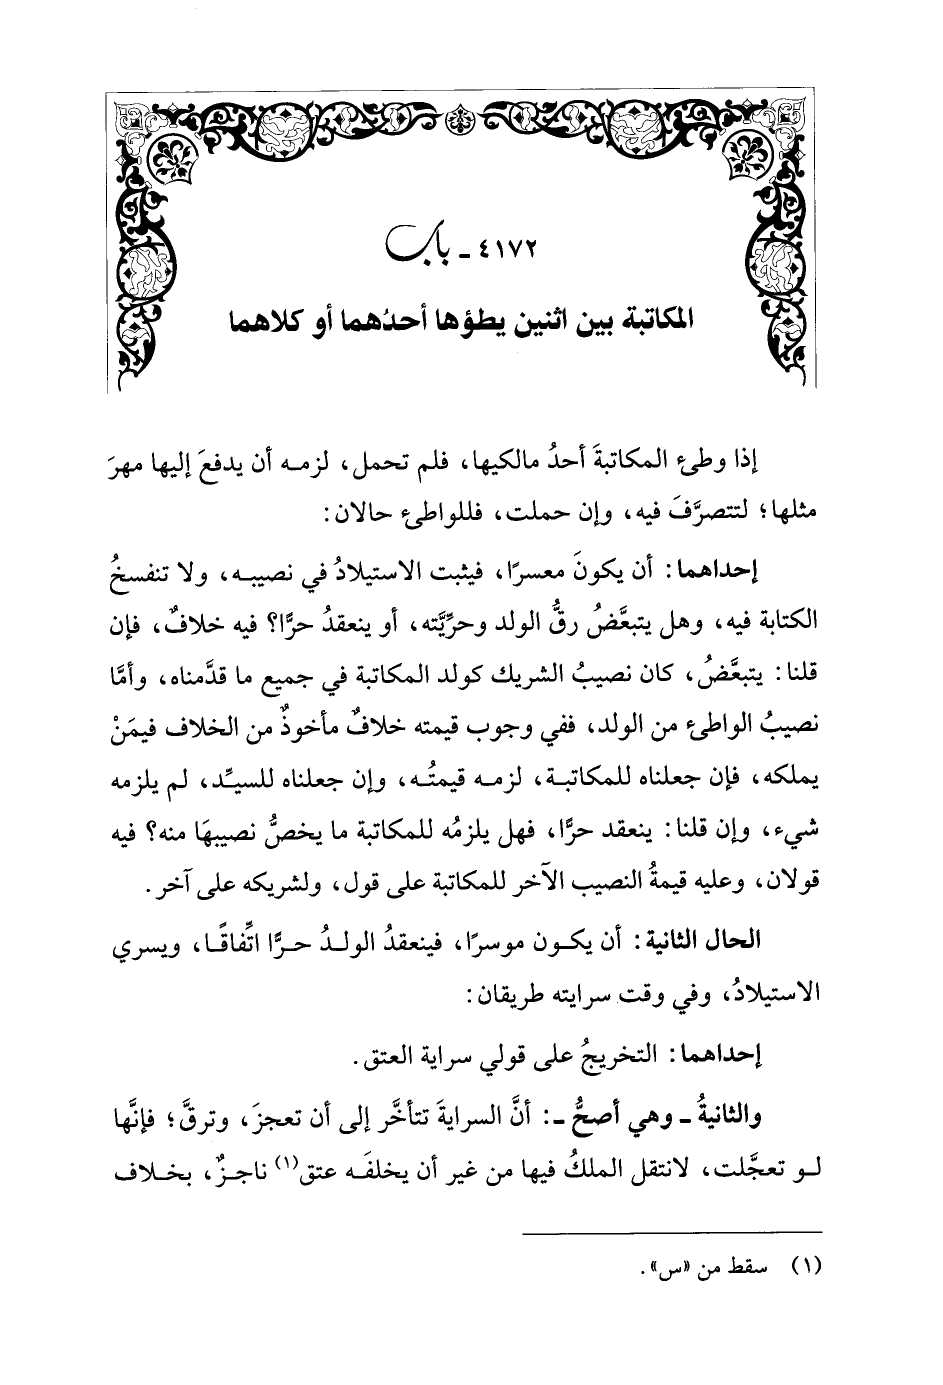 ٤١٧٢ - باب
المكاتبة بين اثنين يطؤها أحدُهما أو كلاهما
إذا وطئ المكاتبةَ أحدُ مالكيها، فلم تحمل، لزمه أن يدفعَ إليها مهرَ
مثلها؛ لتتصرَّفَ فيه، وإن حملت، فللواطئ حالان:
إحداهما: أن يكونَ معسرًا، فيثبت الاستيلادُ في نصيبه، ولا تنفسخُ
الكتابة فيه، وهل يتبعَّضُ رقُّ الولد وحرِّيَّته، أو ينعقدُ حرًّا؟ فيه خلافٌ، فإن
قلنا: يتبعَّضُ، كان نصيبُ الشريك كولد المكاتبة في جميع ما قدَّمناه، وأمَّا
نصيبُ الواطئ من الولد، ففي وجوب قيمته خلافٌ مأخوذٌ من الخلاف فيمَنْ
يملكه، فإن جعلناه للمكاتبة، لزمه قيمتُه، وإن جعلناه للسيِّد، لم يلزمه
شيء، وإن قلنا: ينعقد حرًّا، فهل يلزمُه للمكاتبة ما يخصُّ نصيبهَا منه؟ فيه
قولان، وعليه قيمةُ النصيب الآخر للمكاتبة على قول، ولشريكه على آخر.
الحال الثانية: أن يكون موسرًا، فينعقدُ الولدُ حرًّا اتِّفاقًا، ويسري
الاستيلادُ، وفي وقت سرايته طريقان:
إحداهما: التخريجُ على قولي سراية العتق.
والثانيةُ - وهي أصحُّ -: أنَّ السرايةَ تتأخَّر إلى أن تعجزَ، وترقَّ؛ فإنَّها
لو تعجَّلت، لانتقل الملكُ فيها من غير أن يخلفَه عتق(١) ناجزٌ، بخلاف
(١) سقط من «س».